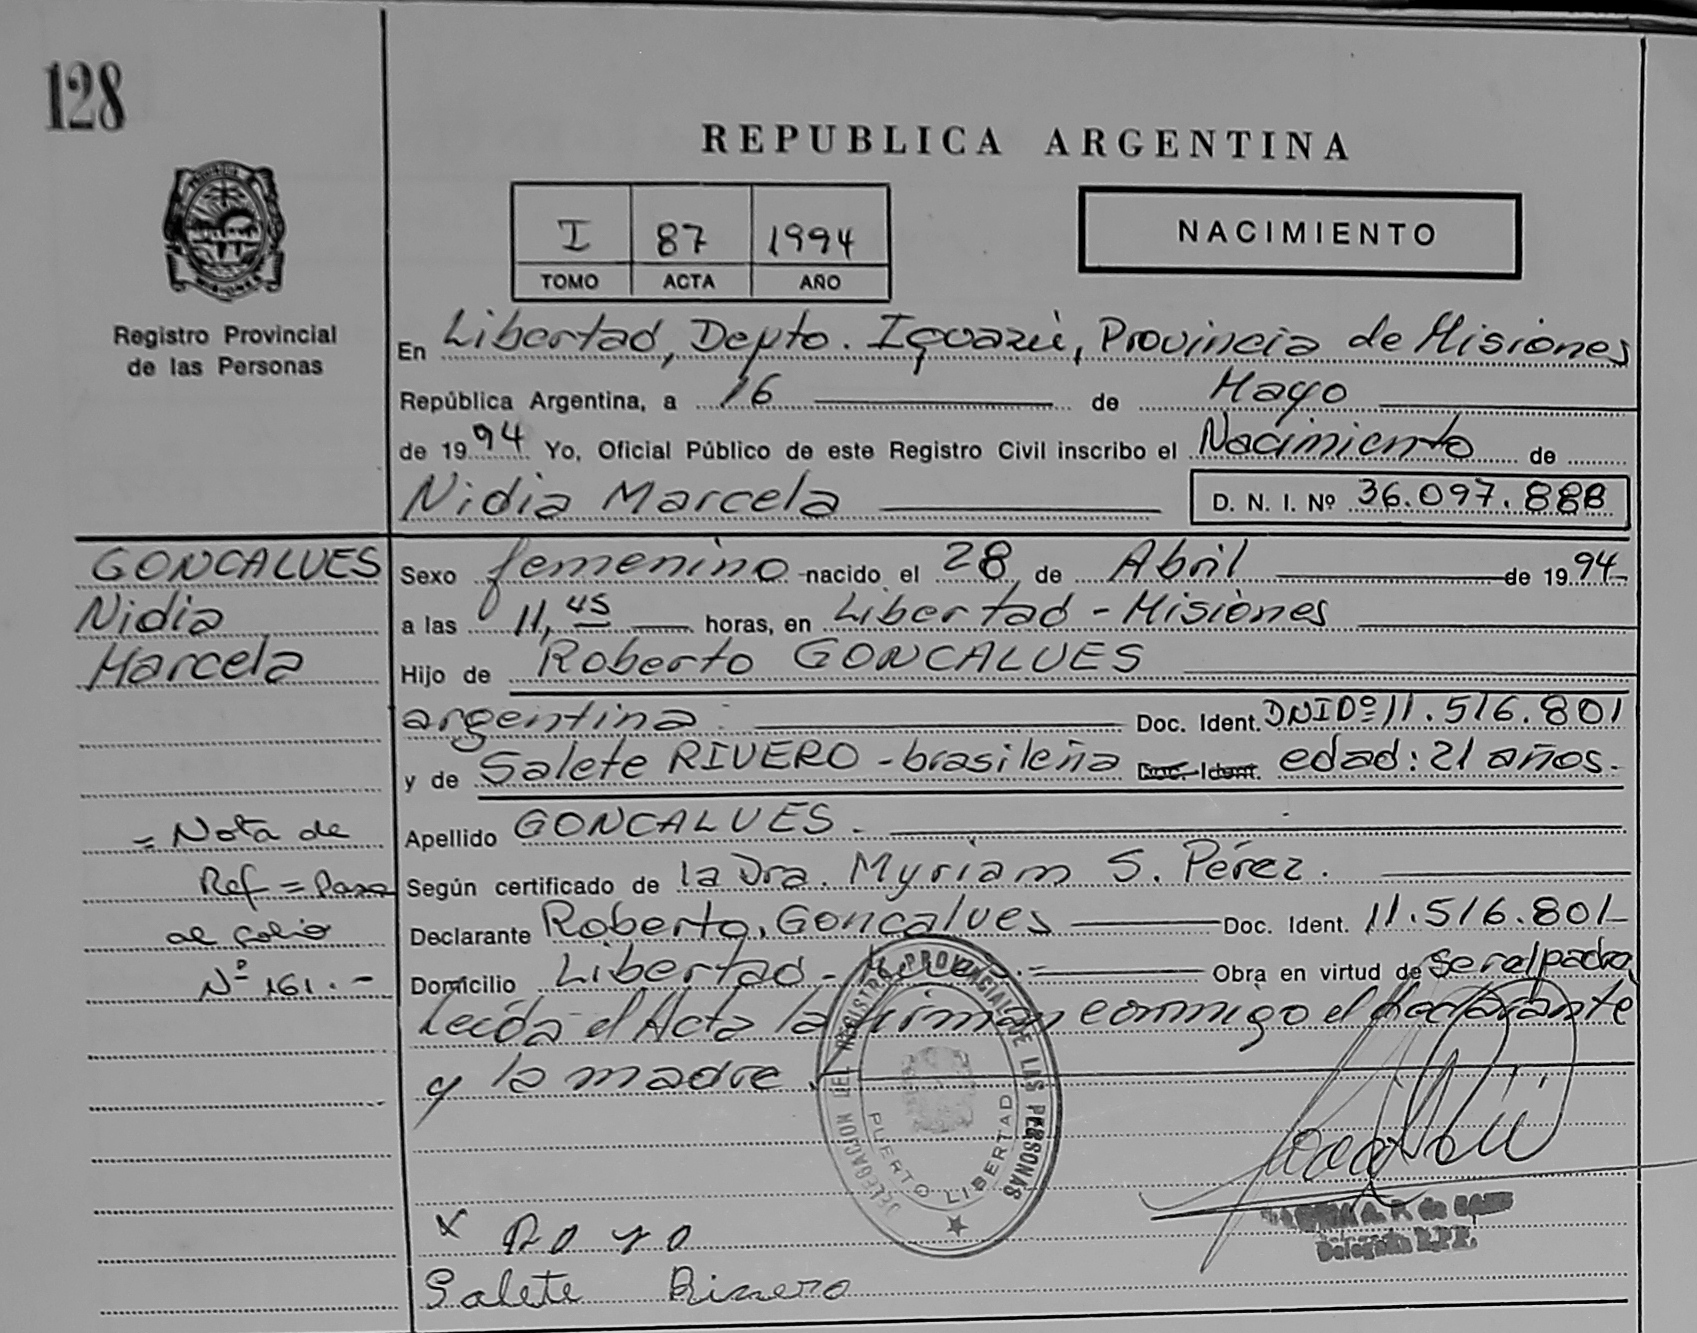 128
REPUBLICA ARGENTINA
I 87 1994
TOMO ACTA AÑO
NACIMIENTO
Registro Provincial
de las Personas
En Libertad, Depto. Iguazú, Provincia de Misiones
República Argentina, a 16 de Mayo
de 1994 Yo, Oficial Público de este Registro Civil inscribo el Nacimiento de
Nidia Marcela D. N. I. Nº 36.097.888
GONCALVES
Nidia
Marcela
Sexo femenino nacido el 28 de Abril de 1994
a las 11,45 horas, en Libertad - Misiones
Hijo de Roberto GONCALVES
argentina. Doc. Ident. DNI Dº 11.516.801
y de Salete RIVERO - brasileña Doc. Ident. edad: 21 años.
Apellido GONCALVES.
Según certificado de la Dra. Myriam S. Pérez.
Declarante Roberto, Goncalves Doc. Ident. 11.516.801
Domicilio Libertad - Obra en virtud de ser el padre,
Leída el Acta la firman conmigo el declarante
y la madre.
= Nota de
Ref = Pasa
al folio
Nº 161.-
DELEGACION DEL REGISTRO PROVINCIAL DE LAS PERSONAS
PUERTO LIBERTAD
de
Delegada R.P.P.
x
Salete Rivero